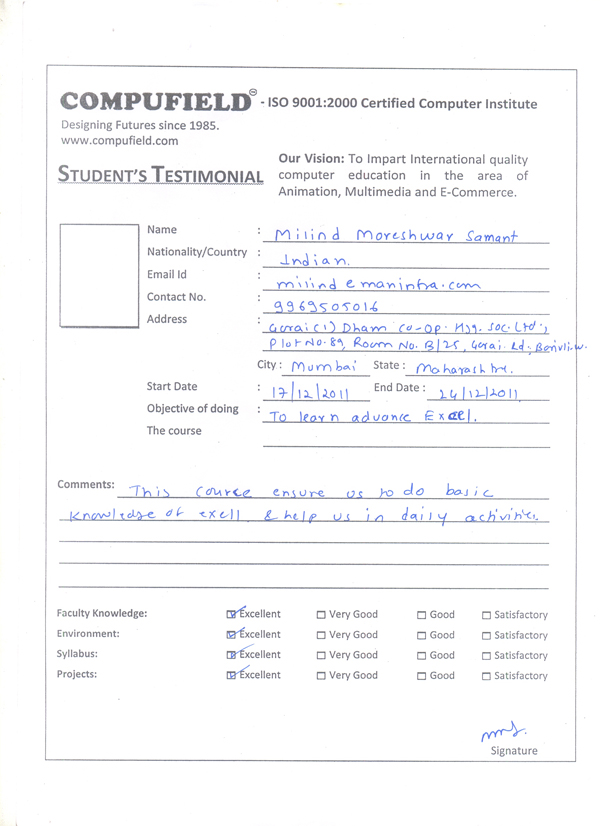 COMPUFIELD - ISO 9001:2000 Certified Computer Institute
Designing Futures since 1985.
www.compufield.com
STUDENT'S TESTIMONIAL
Our Vision: To Impart International quality
computer education in the area of
Animation, Multimedia and E-Commerce.
Name : Milind Moreshwar Samant
Nationality/Country : Indian.
Email Id : milind e maninfra.com
Contact No. : 9969505016
Address : Gorai (1) Dham Co-Op. Hsg. Soc. Ltd.,
Plot No. 89, Room No. B/25, Gorai Rd. Borivli.w.
City : Mumbai State : Maharashtra.
Start Date : 17/12/2011 End Date : 24/12/2011
Objective of doing : To learn advance Excel.
The course
Comments: This cource ensure us to do basic
knowledge of exell & help us in daily activities.
Faculty Knowledge: Excellent Very Good Good Satisfactory
Environment: Excellent Very Good Good Satisfactory
Syllabus: Excellent Very Good Good Satisfactory
Projects: Excellent Very Good Good Satisfactory
Signature